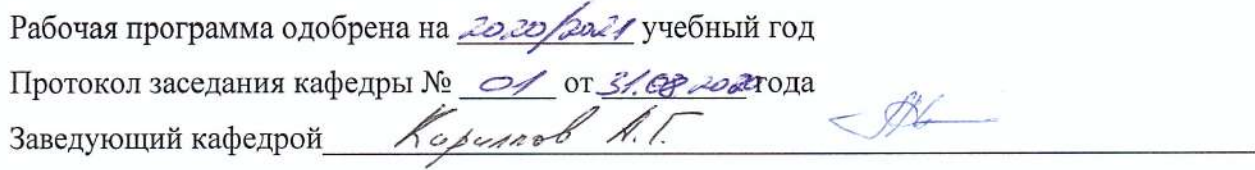 Рабочая программа одобрена на 2020/2021 учебный год
Протокол заседания кафедры № 01 от 31.08 2020 года
Заведующий кафедрой Кириллов А.Г.